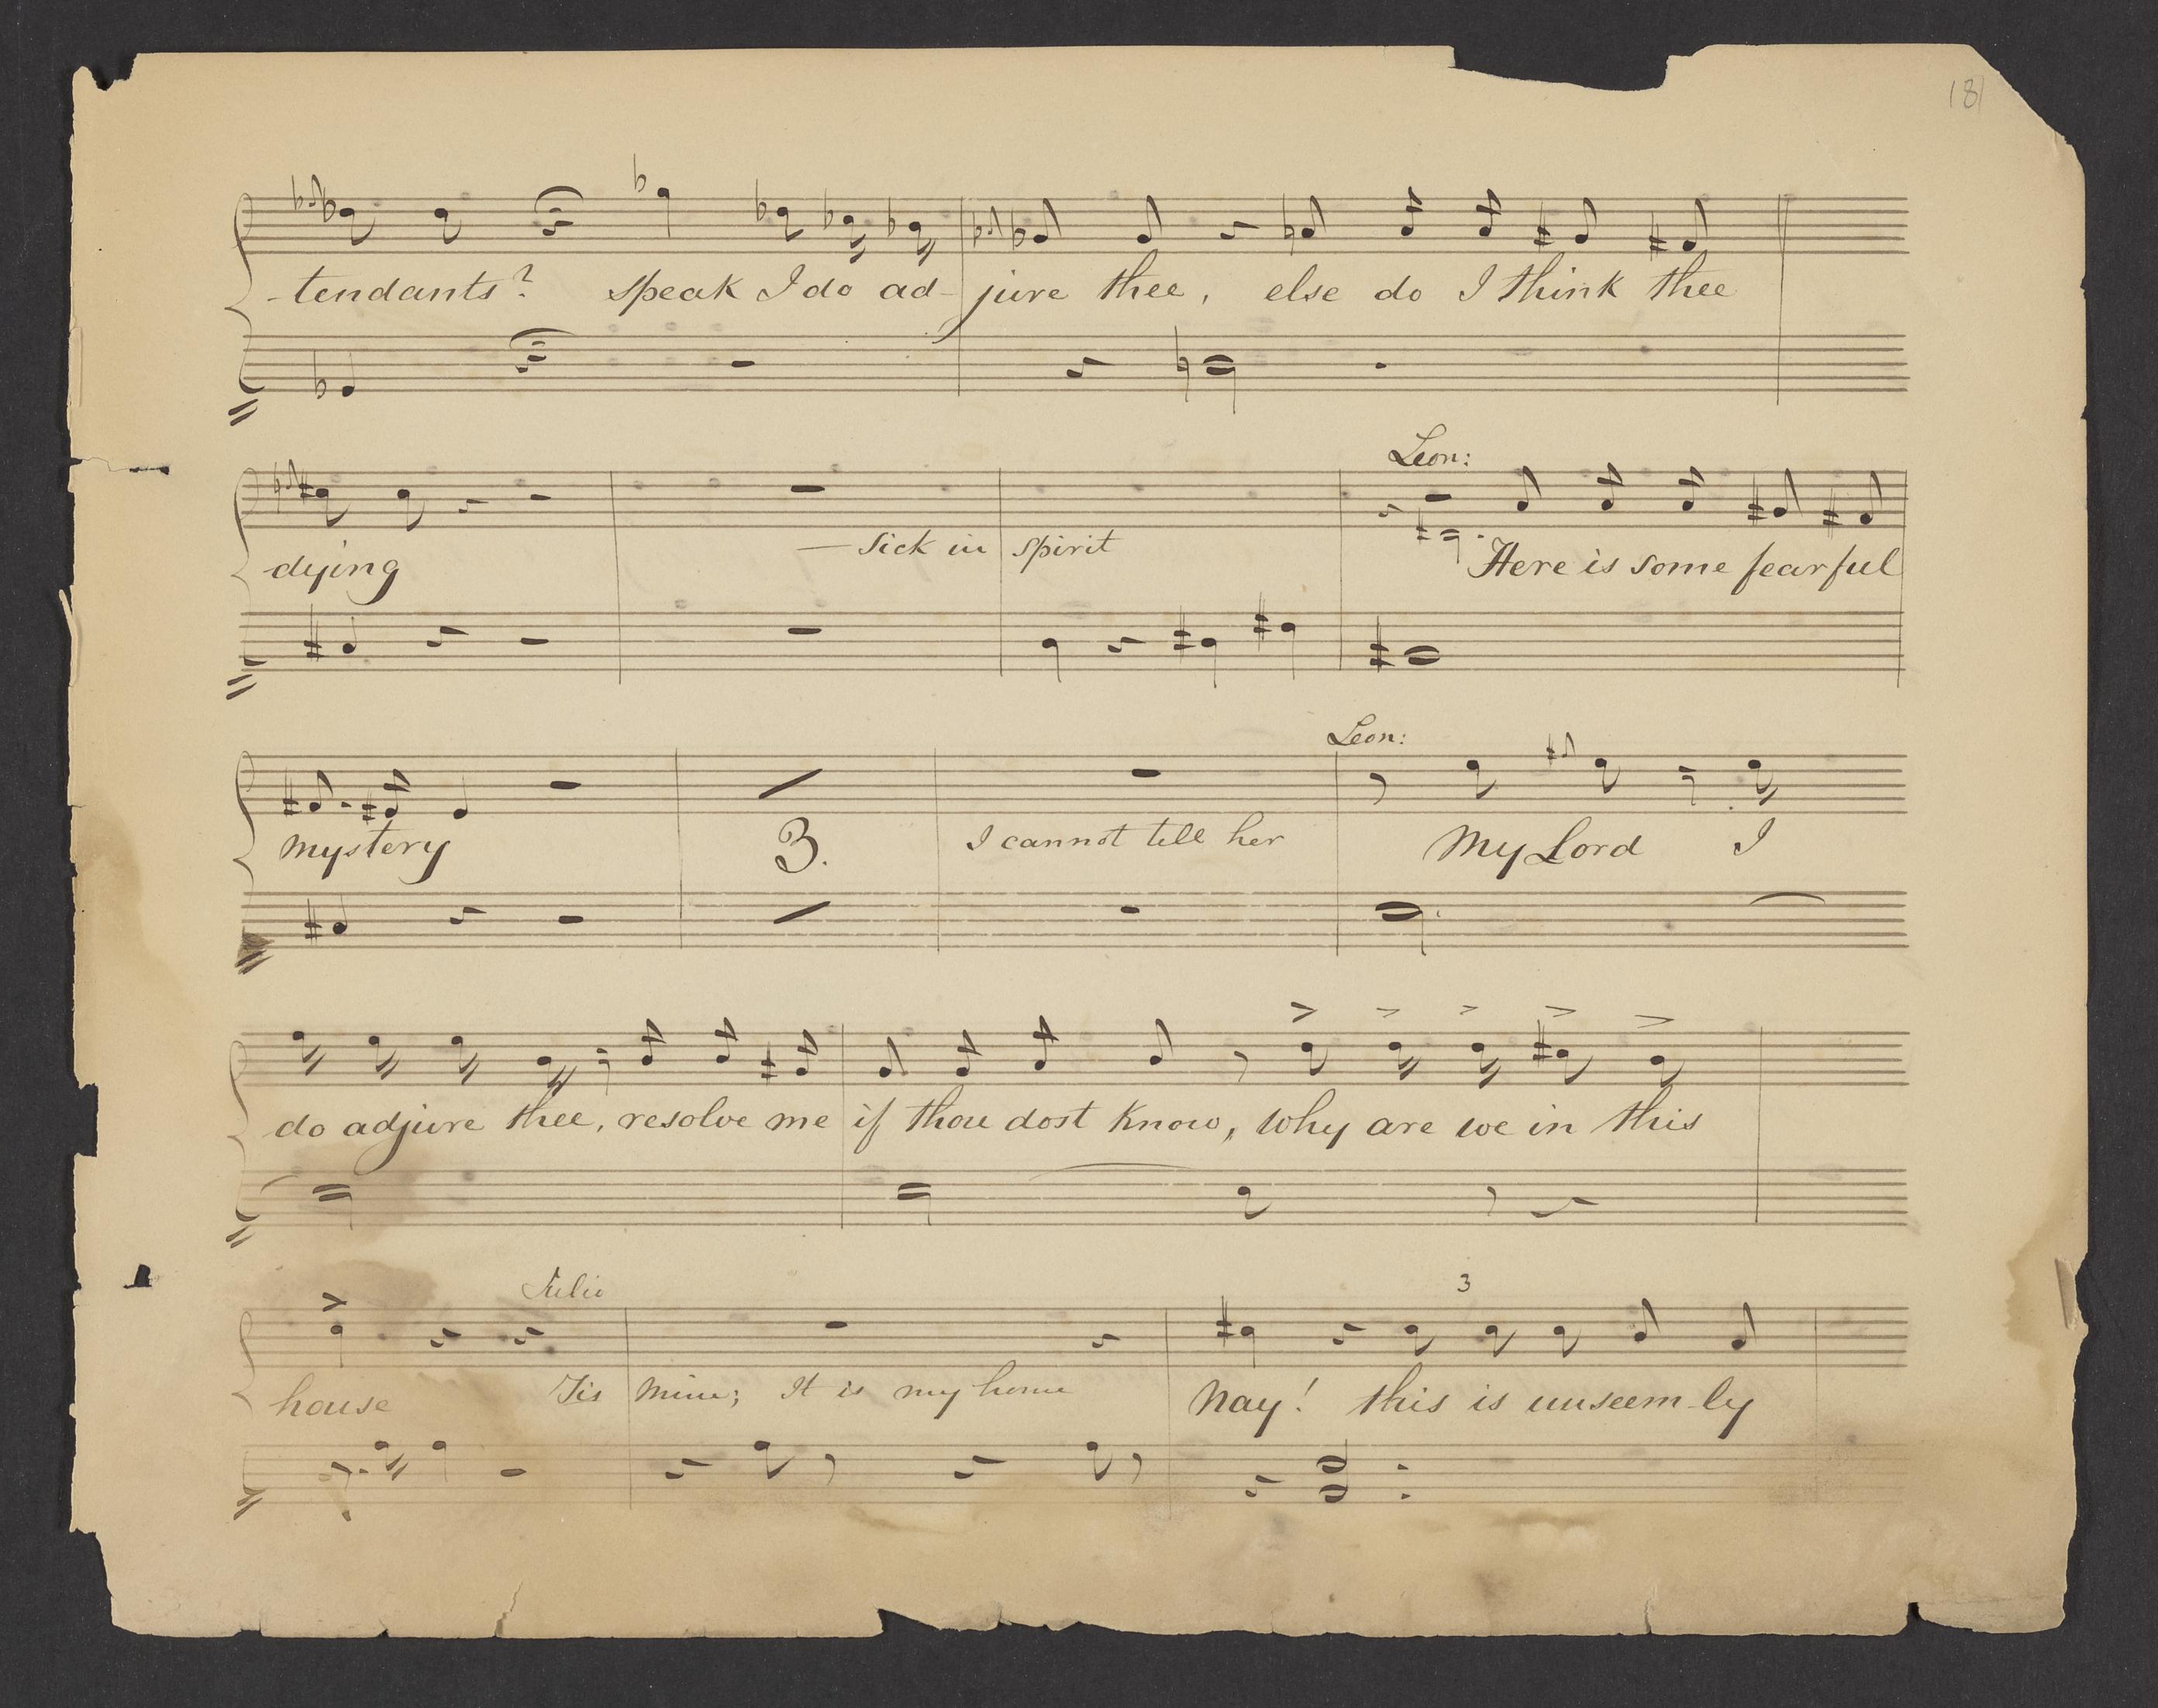 181
-tendants? speak I do ad- jure thee, else do I think thee
Leon:
dying — sick in spirit Here is some fearful
Leon:
mystery 3. I cannot tell her My Lord I
do adjure thee, resolve me if thou dost know, why are we in this
Julio 3
house Tis mine; It is my home Nay! this is unseem-ly